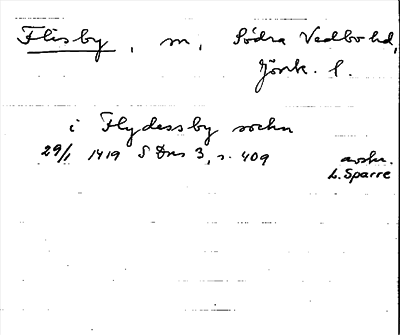 Flisby, m, Södra Vedbo hd,
Jönk. l.
i Flydessby sochn
29/1 1419 S Dns 3, s. 409 avskr.
L. Sparre